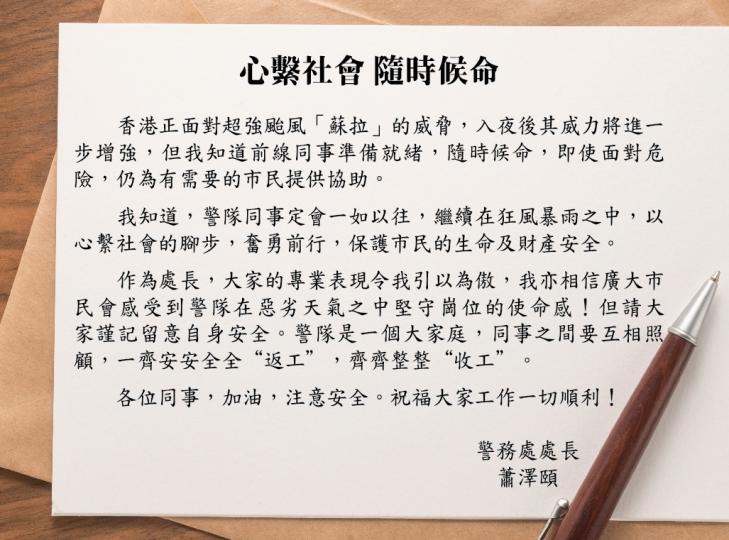 心繫社會 隨時候命
香港正面對超強颱風「蘇拉」的威脅，入夜後其威力將進一
步增強，但我知道前線同事準備就緒，隨時候命，即使面對危
險，仍為有需要的市民提供協助。
我知道，警隊同事定會一如以往，繼續在狂風暴雨之中，以
心繫社會的腳步，奮勇前行，保護市民的生命及財產安全。
作為處長，大家的專業表現令我引以為傲，我亦相信廣大市
民會感受到警隊在惡劣天氣之中堅守崗位的使命感！但請大
家謹記留意自身安全。警隊是一個大家庭，同事之間要互相照
顧，一齊安安全全“返工”，齊齊整整“收工”。
各位同事，加油，注意安全。祝福大家工作一切順利！
警務處處長
蕭澤頤